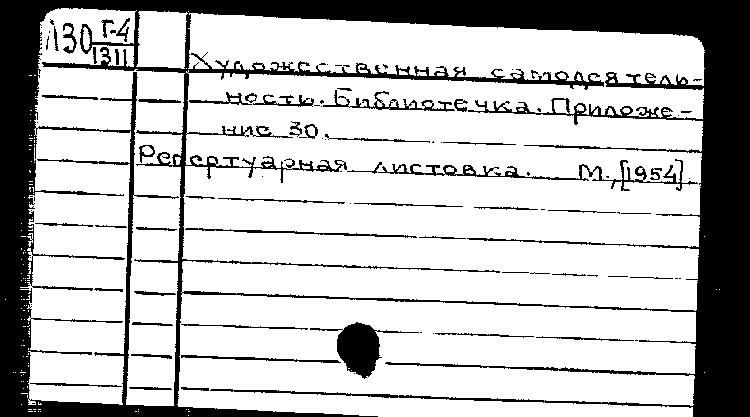 Л30 Г-4
1311
Художественная самодеятель-
ность. Библиотечка. Приложе-
ние 30.
Репертуарная листовка. М., [1954].